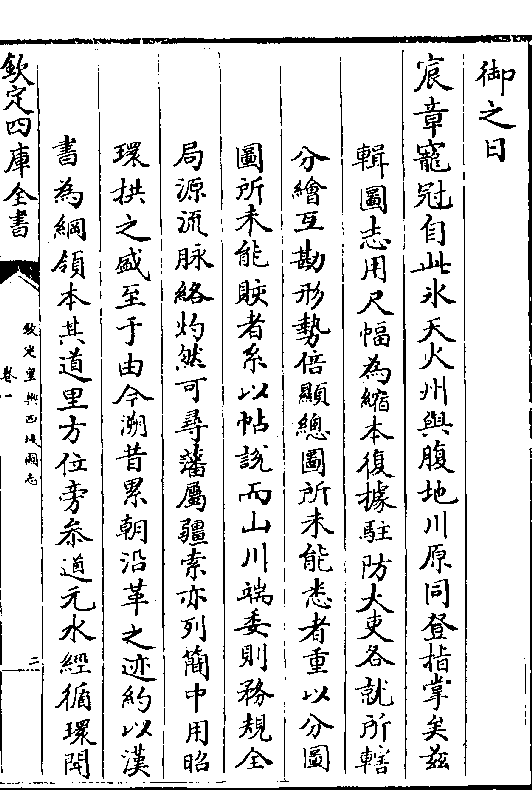 御之日
宸章寵冠自此氷天火州與腹地川原同登指掌矣茲
輯圖志用尺幅為縮本復據駐防大吏各就所轄
分繪互勘形勢倍顯總圖所未能悉者重以分圖
圖所未能賅者系以帖說而山川端委則務規全
局源流脉絡灼然可尋藩屬疆索亦列簡中用昭
環拱之盛至于由今溯昔累朝沿革之迹約以漢
書為綱領本其道里方位旁叅道元水經循環閲
欽定四庫全書
欽定皇輿西域圖志
卷一
二